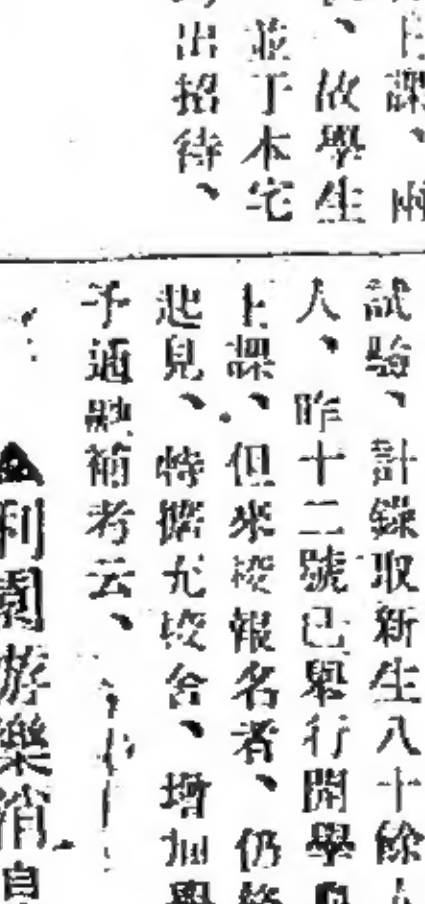 上課、兩
、故學生
並于木宅
出招待、
試驗、計錄取新生八十餘
人、昨十二號已舉行開學
上課、但來校報名者、仍
起見、特擴充校舍、增加學
予通融補考云、
▲利園游樂消息